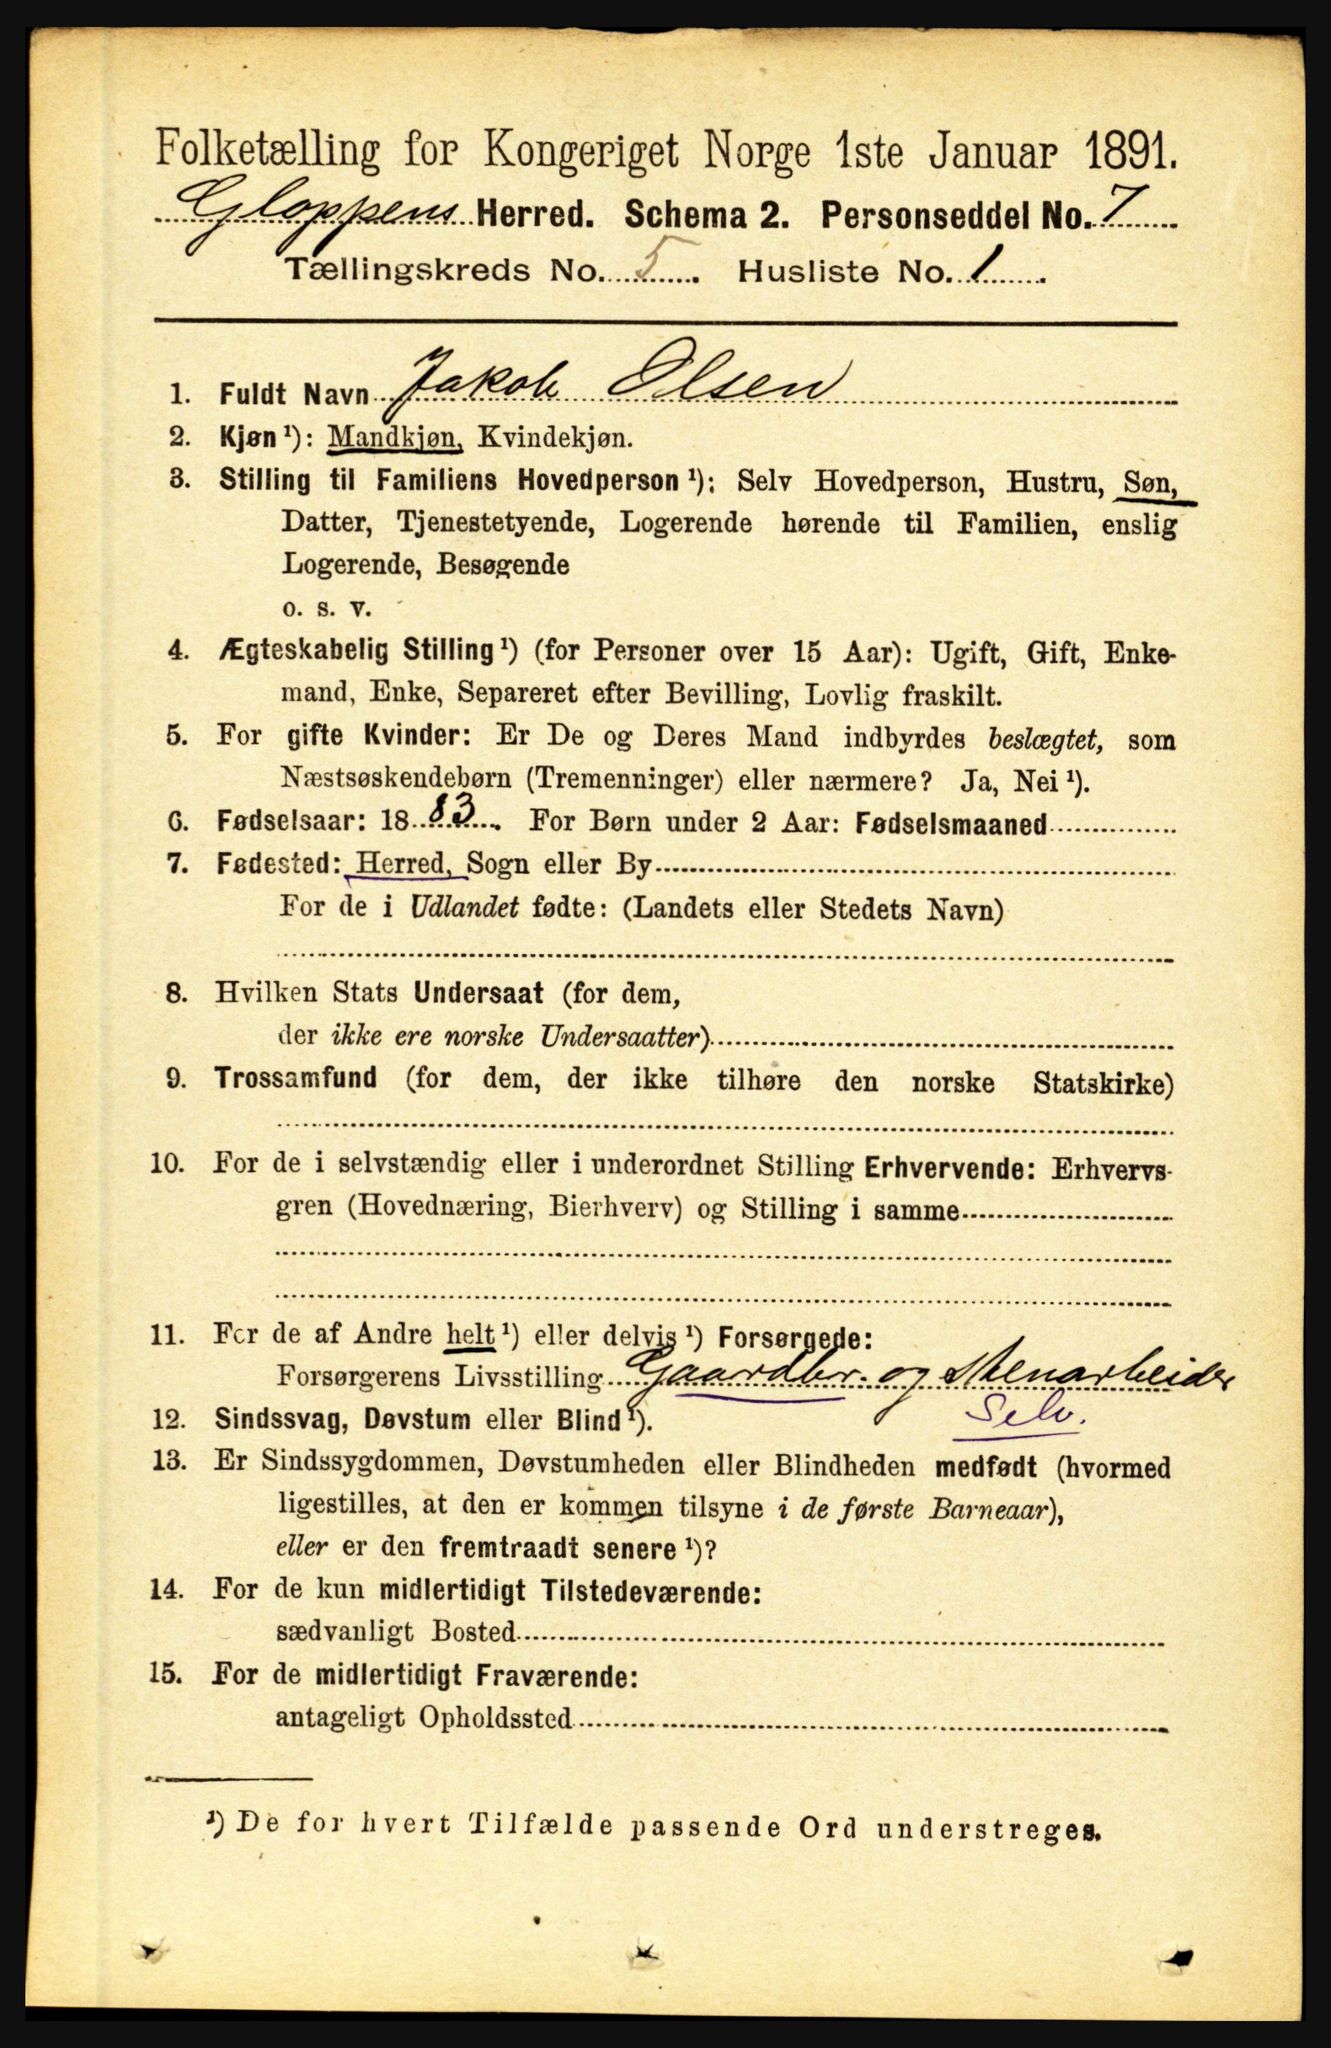 Folketælling for Kongeriget Norge 1ste Januar 1891.
Gloppens Herred. Schema 2. Personseddel No. 7
Tællingskreds No. 5. Husliste No. 1.
1. Fuldt Navn Jakob Olsen
2. Kjøn ¹): Mandkjøn, Kvindekjøn.
3. Stilling til Familiens Hovedperson ¹): Selv Hovedperson, Hustru, Søn,
Datter, Tjenestetyende, Logerende hørende til Familien, enslig
Logerende, Besøgende
o. s. v.
4. Ægteskabelig Stilling ¹) (for Personer over 15 Aar): Ugift, Gift, Enke-
mand, Enke, Separeret efter Bevilling, Lovlig fraskilt.
5. For gifte Kvinder: Er De og Deres Mand indbyrdes beslægtet, som
Næstsøskendebørn (Tremenninger) eller nærmere? Ja, Nei ¹).
6. Fødselsaar: 1883. For Børn under 2 Aar: Fødselsmaaned
7. Fødested: Herred, Sogn eller By
For de i Udlandet fødte: (Landets eller Stedets Navn)
8. Hvilken Stats Undersaat (for dem,
der ikke ere norske Undersaatter)
9. Trossamfund (for dem, der ikke tilhøre den norske Statskirke)
10. For de i selvstændig eller i underordnet Stilling Erhvervende: Erhvervs-
gren (Hovednæring, Bierhverv) og Stilling i samme
11. For de af Andre helt ¹) eller delvis ¹) Forsørgede:
Forsørgerens Livsstilling Gaardbr. og Stenarbeider
Selv.
12. Sindssvag, Døvstum eller Blind ¹).
13. Er Sindssygdommen, Døvstumheden eller Blindheden medfødt (hvormed
ligestilles, at den er kommen tilsyne i de første Barneaar),
eller er den fremtraadt senere ¹)?
14. For de kun midlertidigt Tilstedeværende:
sædvanligt Bosted
15. For de midlertidigt Fraværende:
antageligt Opholdssted
¹) De for hvert Tilfælde passende Ord understreges.